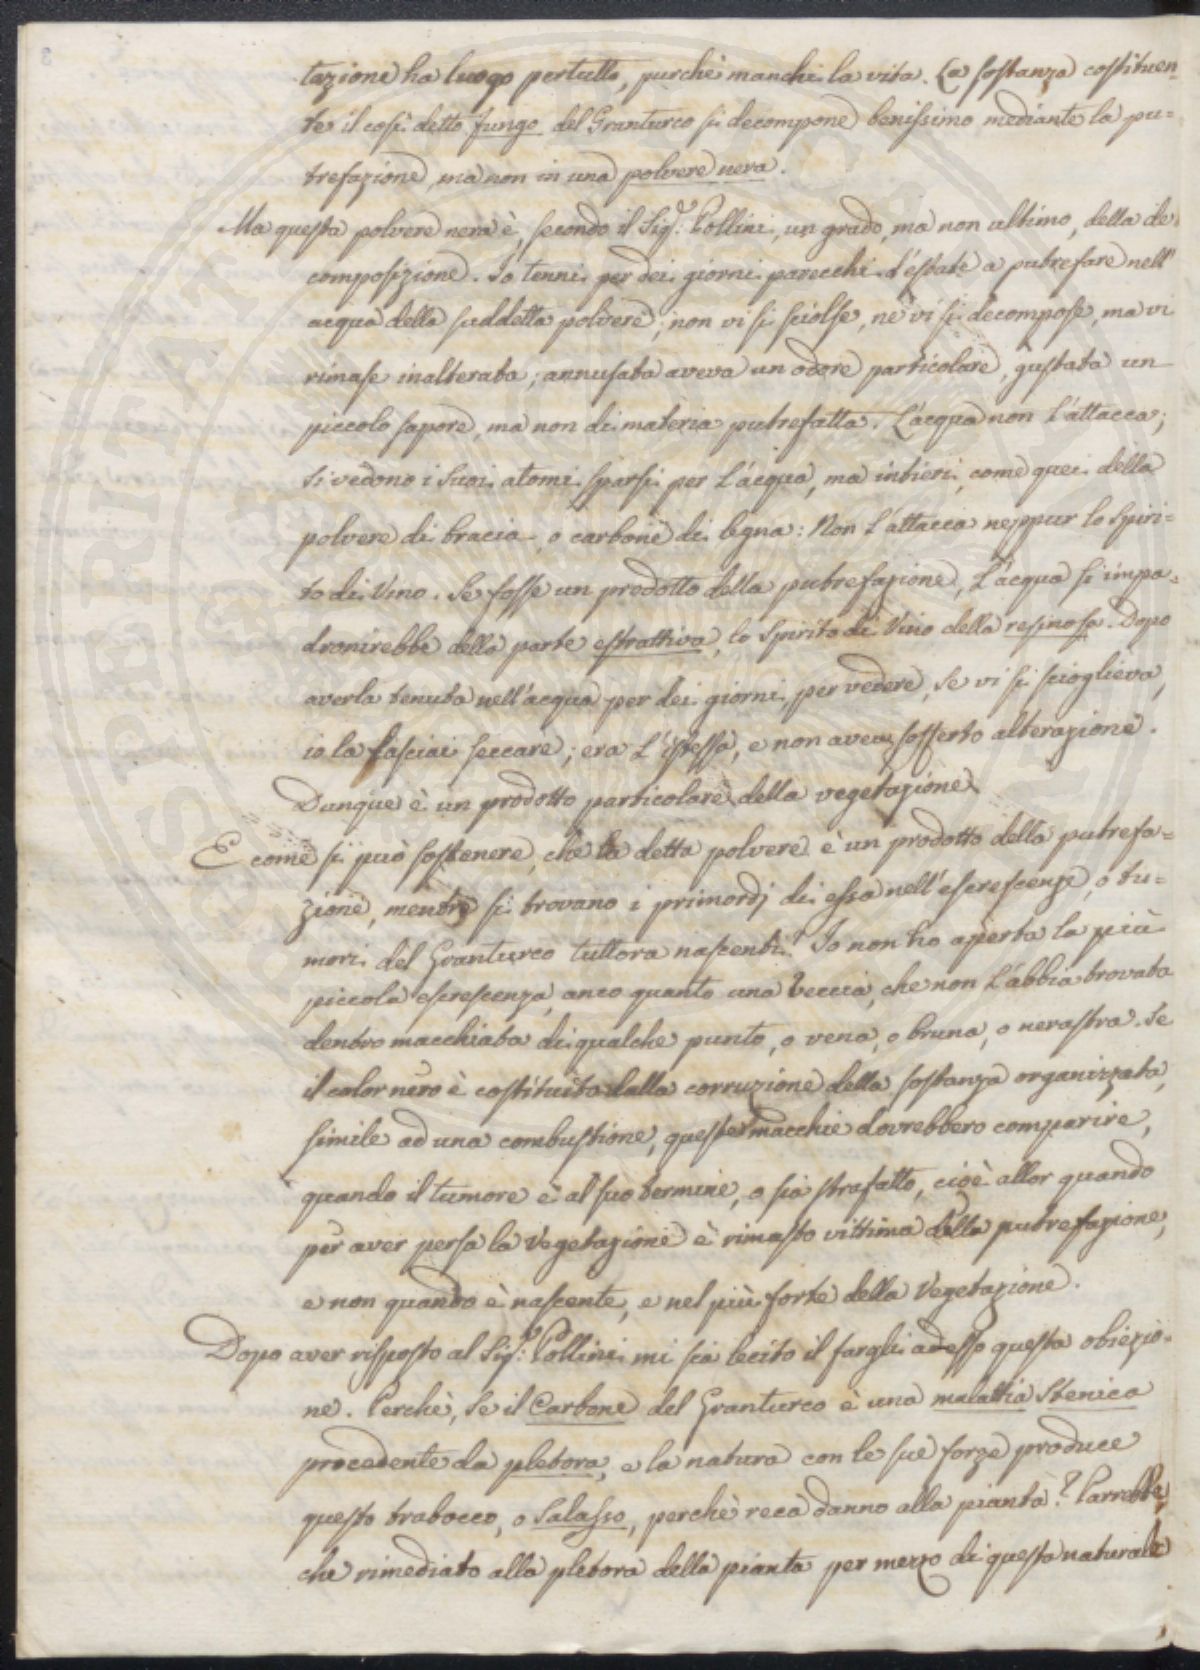 tazione ha luogo pertutto, purchè manchi la vita. La sostanza costituen-
te il così detto fungo del Granturco si decompone benissimo mediante la pu=
trefazione, ma non in una polvere nera.
Ma questa polvere nera è, secondo il Sig.r Pollini, un grado, ma non ultimo, della de
composizione. Io tenni per dei giorni parecchi d'estate a putrefare nell'
acqua della suddetta polvere; non vi si sciolse, nè vi si decompose, ma vi
rimase inalterata; annusata aveva un odore particolare, gustata un
piccolo sapore, ma non di materia putrefatta. L'acqua non l'attacca;
si vedono i suoi atomi sparsi per l'acqua, ma intieri, come quei della
polvere di bracia, o carbone di legna: Non l'attacca neppur lo Spiri=
to di Vino. Se fosse un prodotto della putrefazione, l'acqua si impa=
dronirebbe della parte estrattiva, lo Spirito di Vino della resinosa. Dopo
averla tenuta nell'acqua per dei giorni per vedere, se vi si scioglieva,
io la lasciai seccare; era l'istessa, e non aveva sofferto alterazione.
Dunque è un prodotto particolare della vegetazione.
E come si può sostenere, che la detta polvere è un prodotto della putrefa=
zione, mentre si trovano i primordj di essa nell'escrescenze, o tu=
mori del Granturco tuttora nascenti? Io non ho aperta la più
piccola escrescenza, anco quanto una Veccia, che non l'abbia trovata
dentro macchiata di qualche punto, o vena, o bruna, o nerastra. Se
il color nero è costituito dalla corruzione della sostanza organizzata,
simile ad una combustione, queste macchie dovrebbero comparire,
quando il tumore è al suo termine, o sia strafatto, cioè allor quando
per aver persa la Vegetazione è rimasto vittima della putrefazione,
e non quando è nascente, e nel più forte della Vegetazione.
Dopo aver risposto al Sig.r Pollini mi sia lecito il fargli adesso questa obiezio=
ne. Perchè, se il Carbone del Granturco è una malattia Stenica
procedente da pletora, e la natura con le sue forze produce
questo trabocco, o Salasso, perchè reca danno alla pianta? Parrebbe,
che rimediato alla pletora della pianta per mezzo di questo naturale